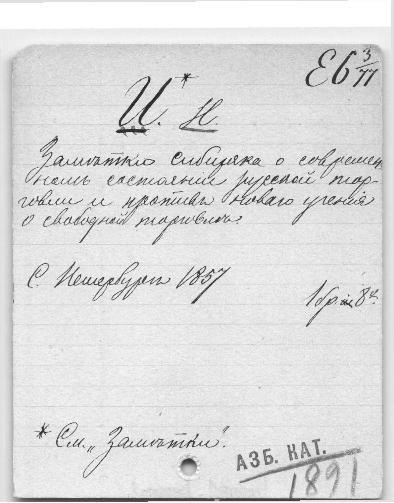 Е6 3/77
И.* Н.
Замѣтки сибиряка о современ
номъ состоянии русской тор-
говли и противъ новаго учения
о свободной торговлѣ
С. Петербургъ 1857
1 бр. 8º.
* См. „Замѣтки".
АЗБ. КАТ.
1891